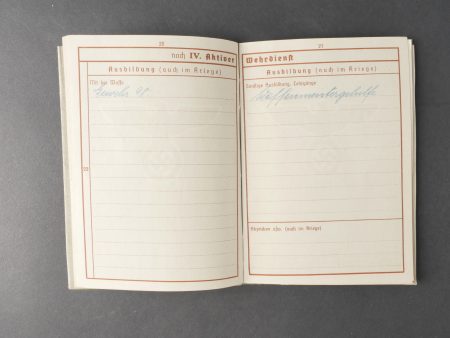 20
noch IV. Aktiver
Ausbildung (auch im Kriege)
Mit der Waffe
Gewehr 98
22
21
Wehrdienst
Ausbildung (auch im Kriege)
Sonstige Ausbildung, Lehrgänge
Waffenmeistergehilfe
Abzeichen usw. (auch im Kriege)